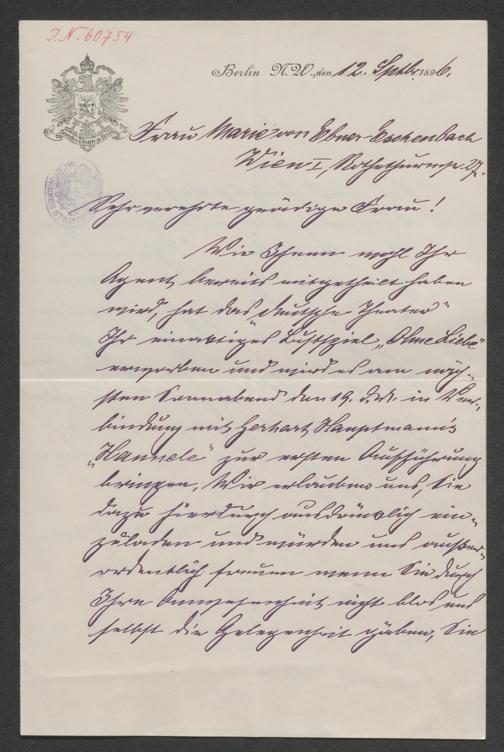 J.N. 60754
Berlin N.W., den 12. Septbr. 1896.
Frau Marie von Ebner-Eschenbach
Wien I, Rothethurmstr. 27.
Sehr verehrte gnädige Frau!
Wie Ihnen wohl Ihr
Agent bereits mitgetheilt haben
wird, hat das „Deutsche Theater"
Ihr einaktiges Lustspiel „Ohne Liebe"
erworben und wird es am näch-
sten Sonnabend den 19. d. M. in Ver-
bindung mit Gerhart Hauptmann's
„Hannele" zur ersten Aufführung
bringen. Wir erlauben uns, Sie
dazu hierdurch ausdrücklich ein-
zuladen und würden uns außer-
ordentlich freuen wenn Sie durch
Ihre Anwesenheit nicht blos uns
selbst die Gelegenheit gäben, Sie